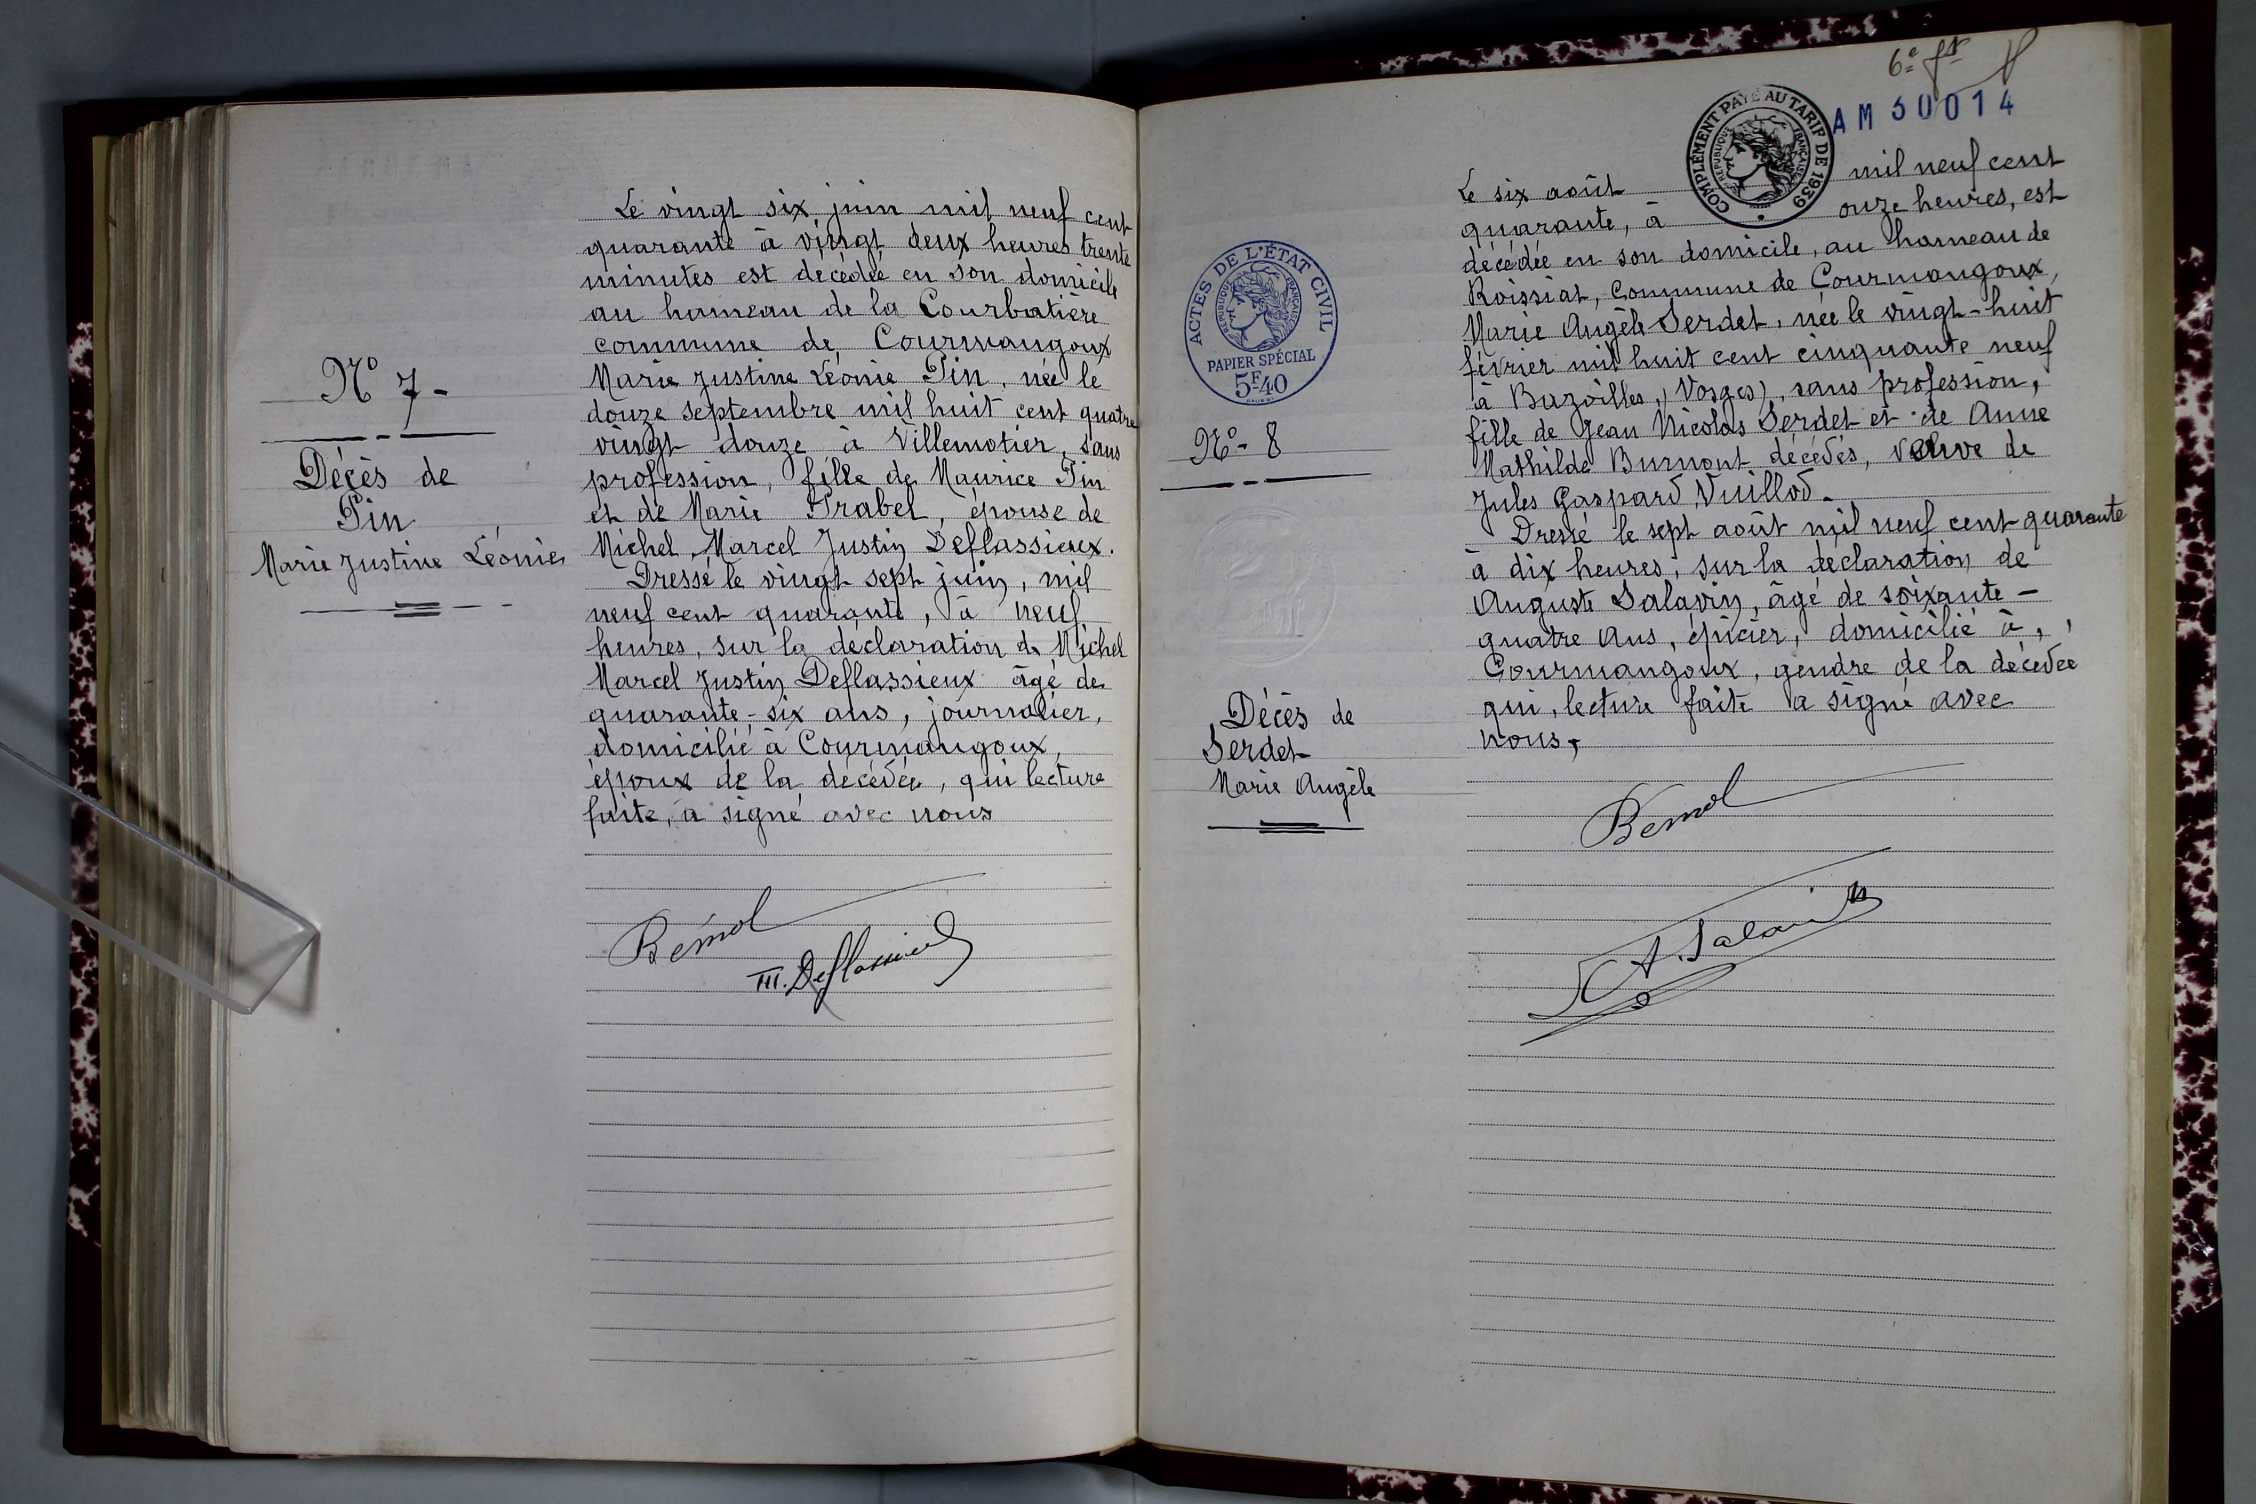 N° 7 -
Décès de
Pin
Marie Justine Léonie
Le vingt six juin mil neuf cent
quarante à vingt deux heures trente
minutes est décédée en son domicile
au hameau de la Courbatière
commune de Courmangoux
Marie Justine Léonie Pin, née le
douze septembre mil huit cent quatre
vingt douze à Villemotier, sans
profession, fille de Maurice Pin
et de Marie Prabel, épouse de
Michel, Marcel Justin Deflassieux.
Dressé le vingt sept juin, mil
neuf cent quarante, à neuf
heures, sur la declaration de Michel
Marcel Justin Deflassieux âgé de
quarante-six ans, journalier,
domicilié à Courmangoux,
époux de la décédée, qui lecture
faite, a signé avec nous
Bémol
M. Deflassieux
6e
COMPLÉMENT PAYÉ AU TARIF DE 1939
RÉPUBLIQUE FRANÇAISE
AM 30014
ACTES DE L'ÉTAT CIVIL
RÉPUBLIQUE FRANÇAISE
PAPIER SPÉCIAL
5F.40
N° - 8
Décès de
Serdet
Marie Angèle
Le six août mil neuf cent
quarante, à onze heures, est
décédée en son domicile, au hameau de
Roissiat, commune de Courmangoux,
Marie Angèle Serdet, née le vingt-huit
février mil huit cent cinquante neuf
à Bazoilles, (Vosges), sans profession,
fille de Jean Nicolas Serdet et de Anne
Mathilde Burnont décédés, veuve de
Jules Gaspard Vuillod.
Dressé le sept août mil neuf cent quarante
à dix heures, sur la declaration de
Auguste Salavin, âgé de soixante-
quatre ans, épicier, domicilié à,
Courmangoux, gendre de la décédée
qui, lecture faite a signé avec
nous,
Bémol
A. Salavin